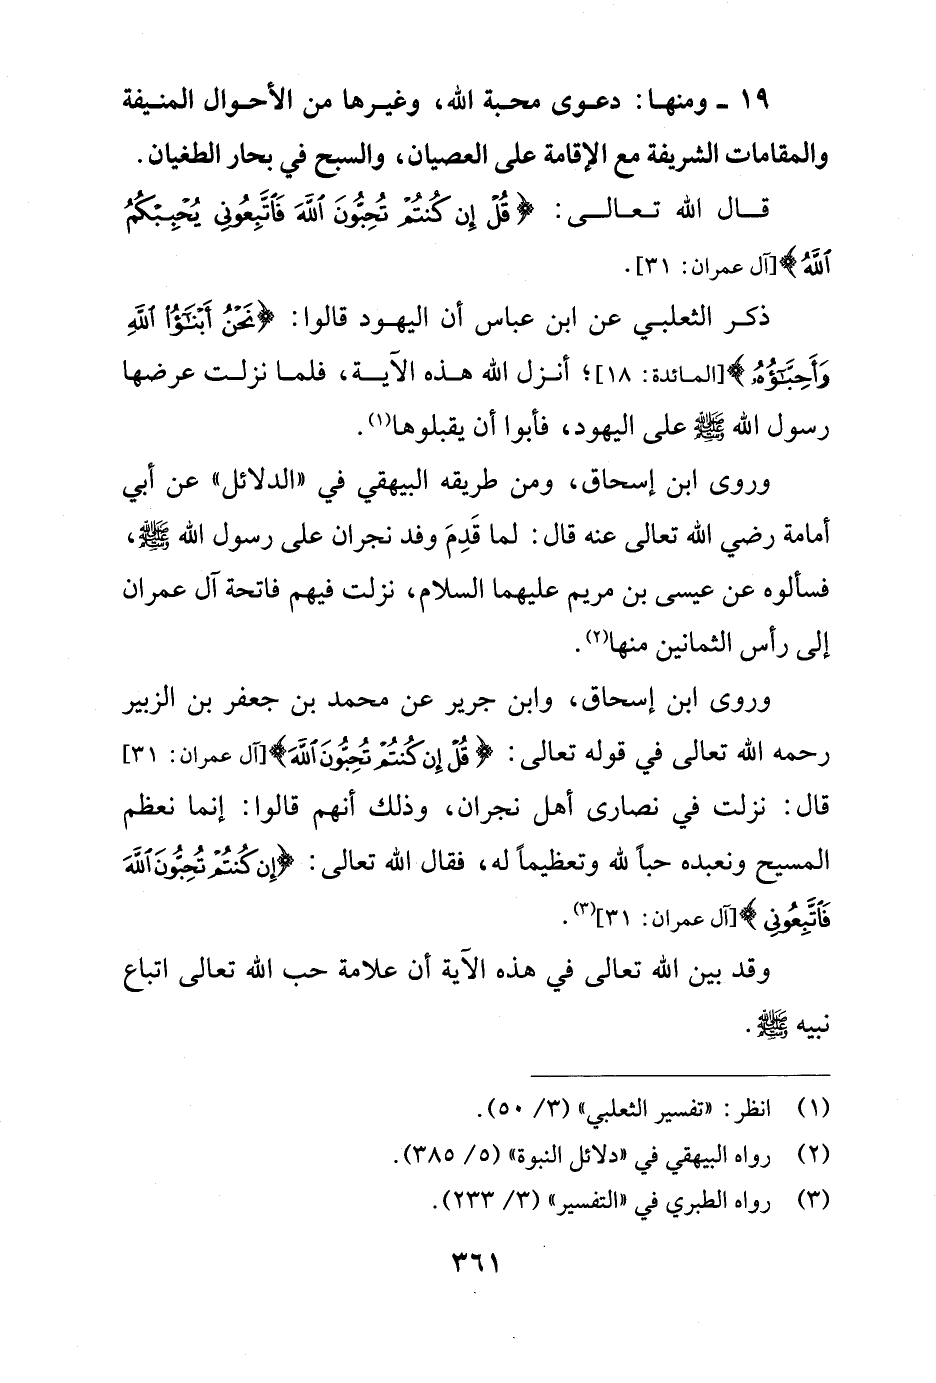 ١٩ ـ ومنها: دعوى محبة الله، وغيرها من الأحوال المنيفة
والمقامات الشريفة مع الإقامة على العصيان، والسبح في بحار الطغيان.
قال الله تعالى: ﴿قُلْ إِن كُنتُمْ تُحِبُّونَ ٱللَّهَ فَٱتَّبِعُونِي يُحْبِبْكُمُ
ٱللَّهُ﴾[آل عمران: ٣١].
ذكر الثعلبي عن ابن عباس أن اليهود قالوا: ﴿نَحْنُ أَبْنَٰٓؤُا۟ ٱللَّهِ
وَأَحِبَّٰٓؤُهُۥ﴾[المائدة: ١٨]؛ أنزل الله هذه الآية، فلما نزلت عرضها
رسول الله ﷺ على اليهود، فأبوا أن يقبلوها(١).
وروى ابن إسحاق، ومن طريقه البيهقي في «الدلائل» عن أبي
أمامة رضي الله تعالى عنه قال: لما قَدِمَ وفد نجران على رسول الله ﷺ،
فسألوه عن عيسى بن مريم عليهما السلام، نزلت فيهم فاتحة آل عمران
إلى رأس الثمانين منها(٢).
وروى ابن إسحاق، وابن جرير عن محمد بن جعفر بن الزبير
رحمه الله تعالى في قوله تعالى: ﴿قُلْ إِن كُنتُمْ تُحِبُّونَ ٱللَّهَ﴾[آل عمران: ٣١]
قال: نزلت في نصارى أهل نجران، وذلك أنهم قالوا: إنما نعظم
المسيح ونعبده حباً لله وتعظيماً له، فقال الله تعالى: ﴿إِن كُنتُمْ تُحِبُّونَ ٱللَّهَ
فَٱتَّبِعُونِي﴾[آل عمران: ٣١](٣).
وقد بين الله تعالى في هذه الآية أن علامة حب الله تعالى اتباع
نبيه ﷺ.
(١) انظر: «تفسير الثعلبي» (٣/ ٥٠).
(٢) رواه البيهقي في «دلائل النبوة» (٥/ ٣٨٥).
(٣) رواه الطبري في «التفسير» (٣/ ٢٣٣).
٣٦١